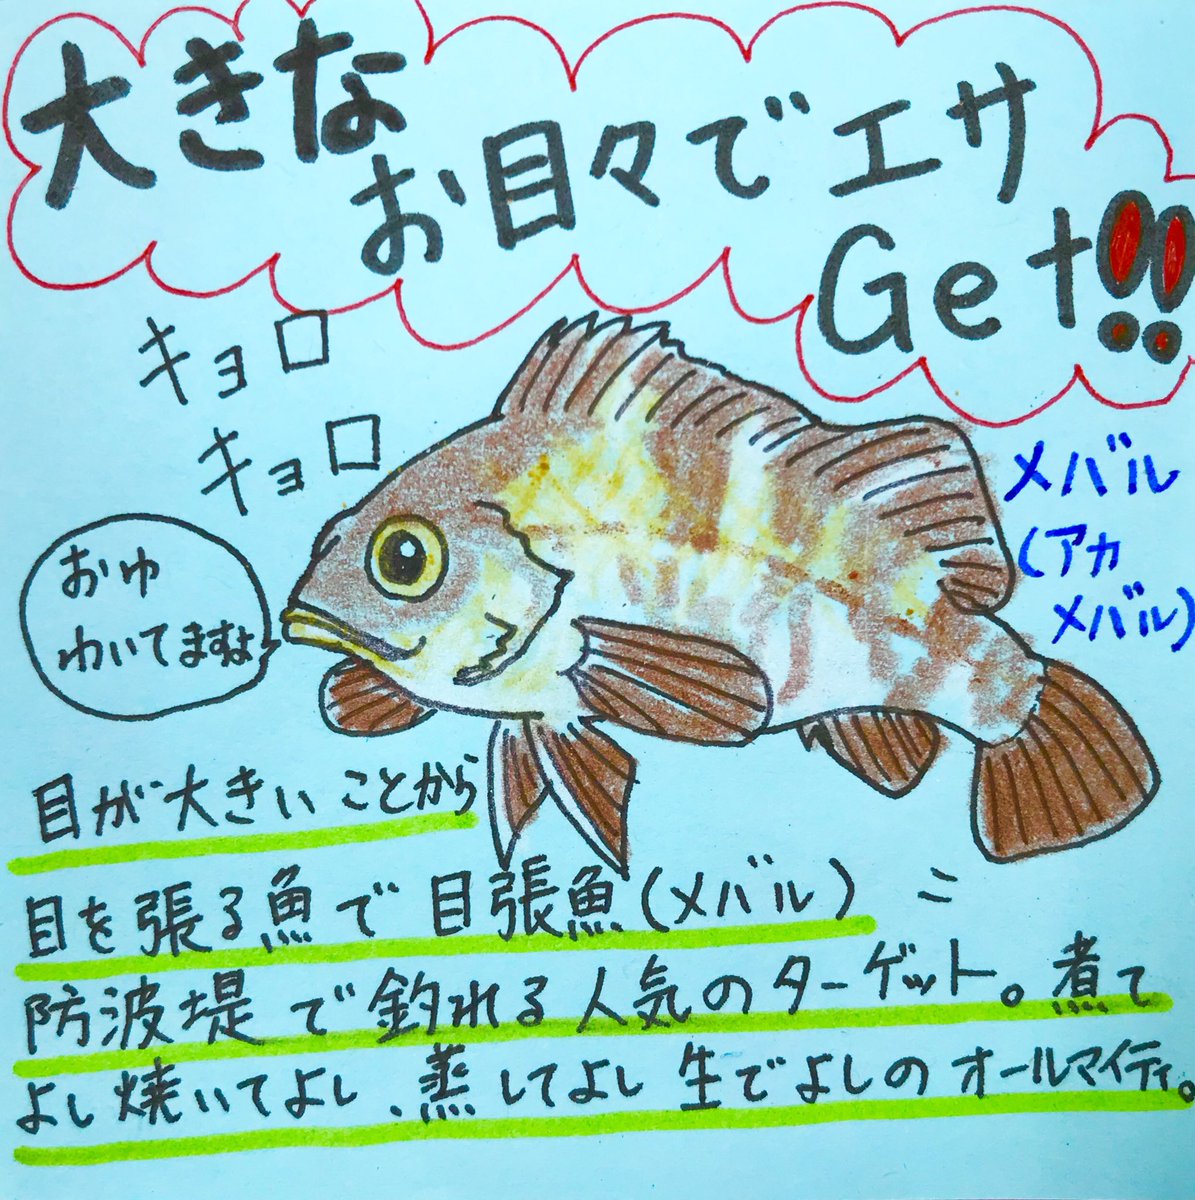 大きな
お目々でエサ
Get!!
キョロ
キョロ
メバル
(アカ
メバル)
おゆ
わいてますよ
目が大きいことから
目を張る魚で目張魚(メバル)
防波堤で釣れる人気のターゲット。煮て
よし焼いてよし、蒸してよし生でよしのオールマイティ。